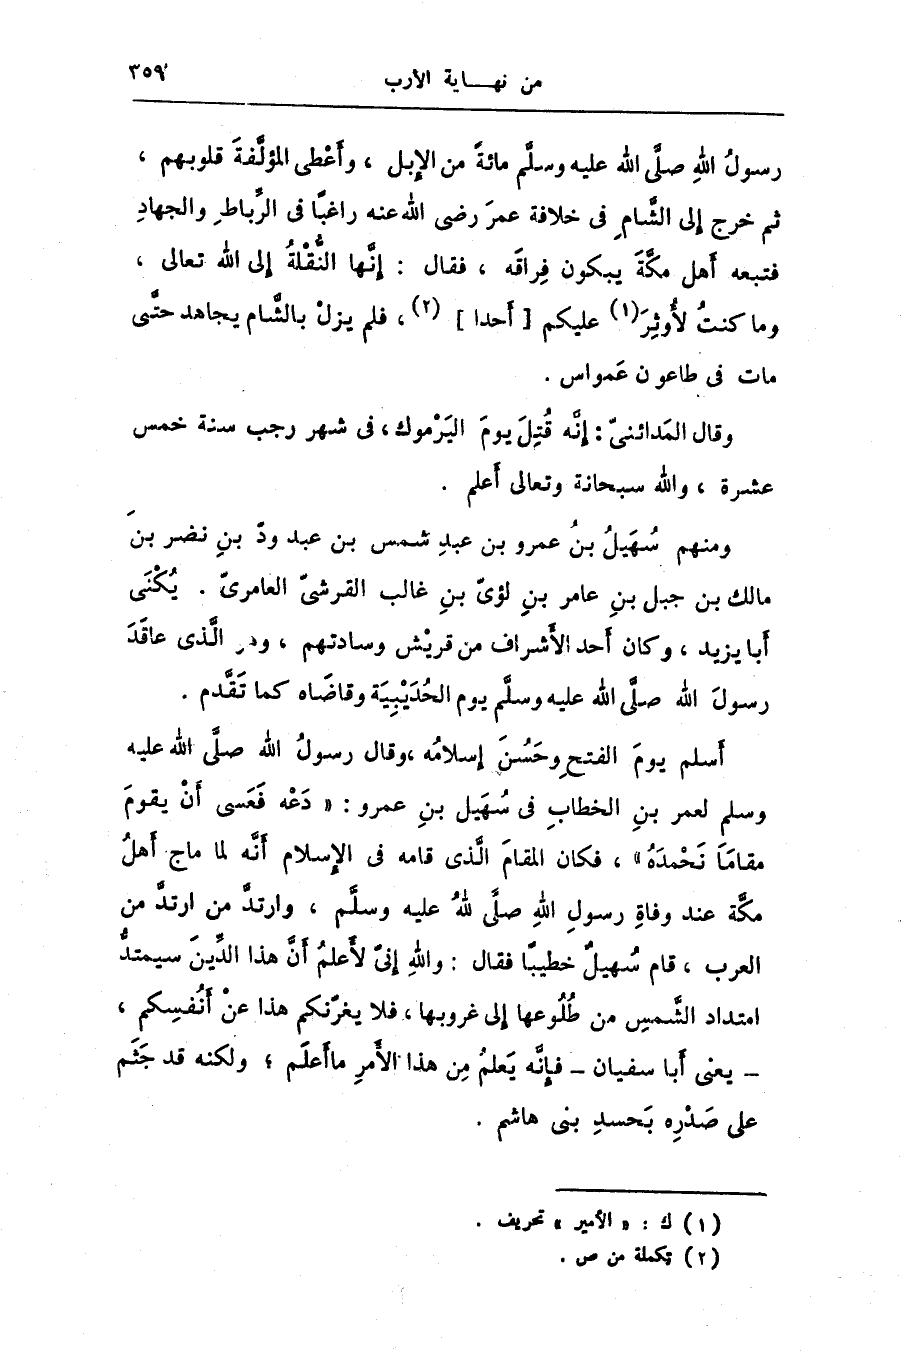 من نهاية الأرب ٣٥٩
رسولُ اللهِ صلَّى الله عليه وسلَّم مائةً من الإبل ، وأَعْطى المؤلَّفةَ قلوبهم ،
ثم خرج إلى الشَّامِ فى خلافة عمرَ رضى الله عنه راغبًا فى الرِّباطِ والجهادِ
فتبعه أهل مكَّةَ يبكون فِراقَه ، فقال : إنَّها النُّقْلةُ إلى الله تعالى ،
وما كنتُ لأُوثِرَ(١) عليكم [ أحدا ] (٢) ، فلم يزلْ بالشَّام يجاهد حتَّى
مات فى طاعون عَمواس .
وقال المَدائنىّ : إنَّه قُتِلَ يومَ اليَرْموك ، فى شهر رجب سنة خمس
عشرة ، والله سبحانة وتعالى أعلم .
ومنهم سُهَيلُ بنُ عمرو بن عبدِ شمس بن عبد ودّ بنِ نضر بنَ
مالك بن جبل بنِ عامر بنِ لؤىّ بنِ غالب القرشىّ العامرىّ . يُكْنَى
أبا يزيد ، وكان أحد الأشراف من قريْش وسادتهم ، وهو الَّذى عاقَدَ
رسولَ الله صلَّى الله عليه وسلَّم يوم الحُدَيْبِيَة وقاضَاه كما تَقَّدم .
أسلم يومَ الفتحِ وحَسُنَ إسلامُه ،وقال رسولُ الله صلَّى الله عليه
وسلم لعمر بنِ الخطابِ فى سُهَيل بنِ عمرو : « دَعْه فَعَسى أنْ يقومَ
مقامَاَ نَحْمدَهُ » ، فكان المقامَ الَّذى قامه فى الإسلام أنَّه لما ماج أهلُ
مكَّة عند وفاةِ رسولِ اللهِ صلَّى للهُ عليه وسلَّم ، وارتدَّ من ارتدَّ من
العرب ، قام سُهيلٌ خطيبًا فقال : واللهِ إنىّ لأعلمُ أنَّ هذا الدِّينَ سيمتدُّ
امتداد الشَّمسِ من طُلُوعها إلى غروبها ، فلا يغرّنكم هذا عنْ أنُفسِكم ،
– يعنى أبا سفيان – فإنَّه يَعلمُ مِن هذا الأمرِ ماأعلَم ؛ ولكنه قد جَثَم
على صَدْرِه بَحسدِ بنى هاشم .
(١) ك : « الأمير » تحريف .
(٢) تكملة من ص .